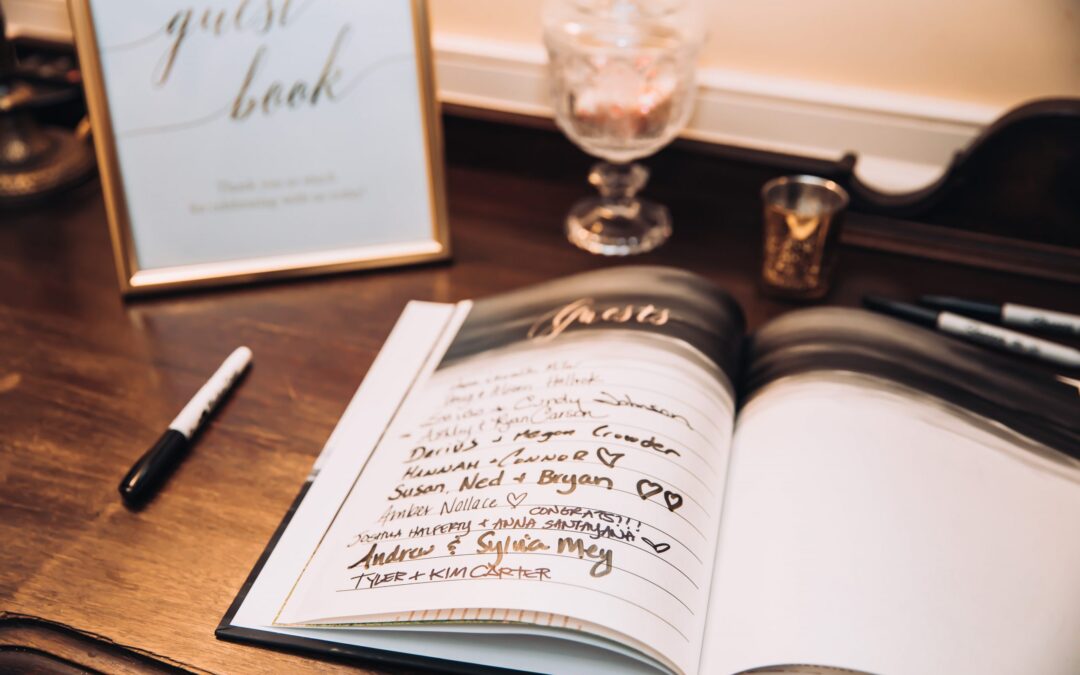 guest
book
Thank you so much
for celebrating with us today!
Guests
& Alison Hallock
& Cindy Johnson
Ashley & Ryan Carson
Darius + Megan Crowder
HANNAH + CONNOR ♡
Susan, Ned + Bryan ♡♡
Amber Nollace ♡
CONGRATS!!!
JOSHUA HALFERTY & ANNA SANTAYANA ♡
Andrew & Sylvia Mey
TYLER + KIM CARTER